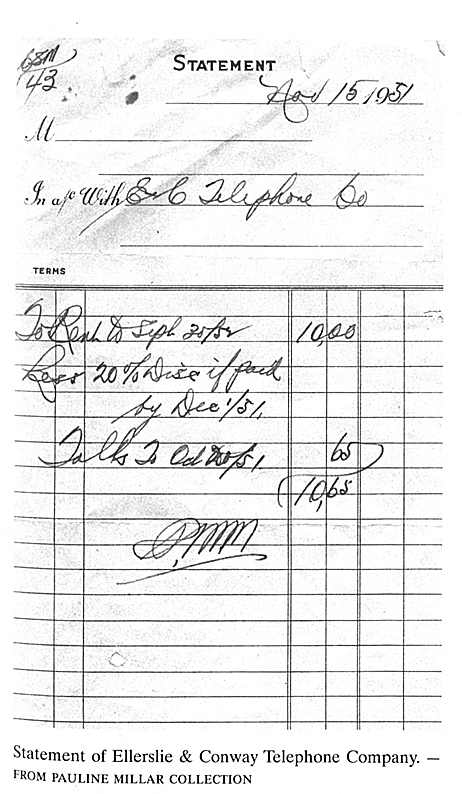 43
STATEMENT
Nov 15 1951
M
In a/c With E & C Telephone Co
TERMS
To Rent to Sept 30/52 10,00
Less 20% Disc if paid
by Dec 1/51.
Talks To Oct /51 65
10,65
Statement of Ellerslie & Conway Telephone Company. —
FROM PAULINE MILLAR COLLECTION